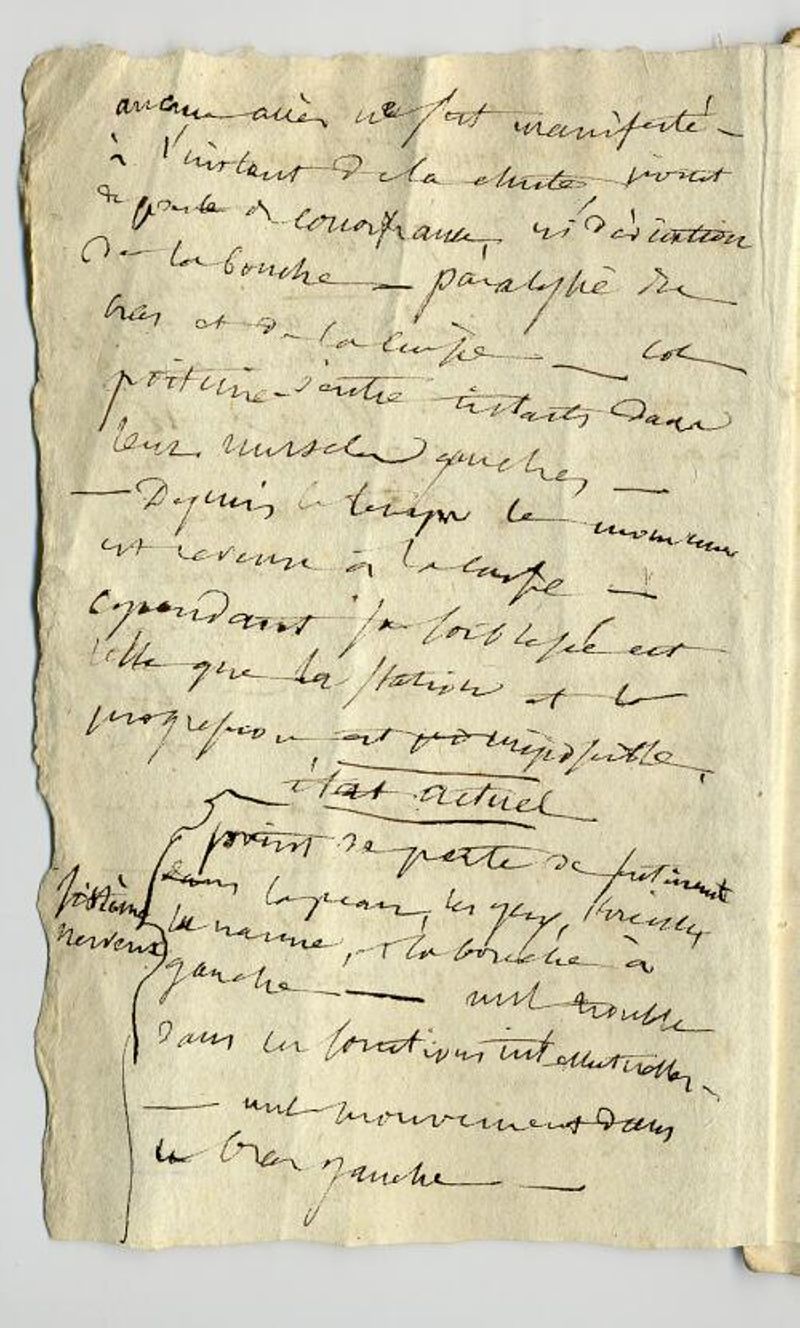 aucun accès ne s'est manifesté –
à l'instant de la chute point
de perte de connaissance, ni déviation
de la bouche – paralysie du
bras et de la cuisse –
poitrine dans
leurs muscles gauches –
– Depuis le temps le mouvement
est revenu à la cuisse –
cependant sa foiblesse est
telle que la station et la
progression est impossible.
état actuel
point de perte de sentiment
dans la peau, les yeux, l'oreille
la narine, et la bouche à
gauche — nul trouble
dans les fonctions intellectuelles –
— nul mouvement dans
le bras gauche —
sistème
nerveux